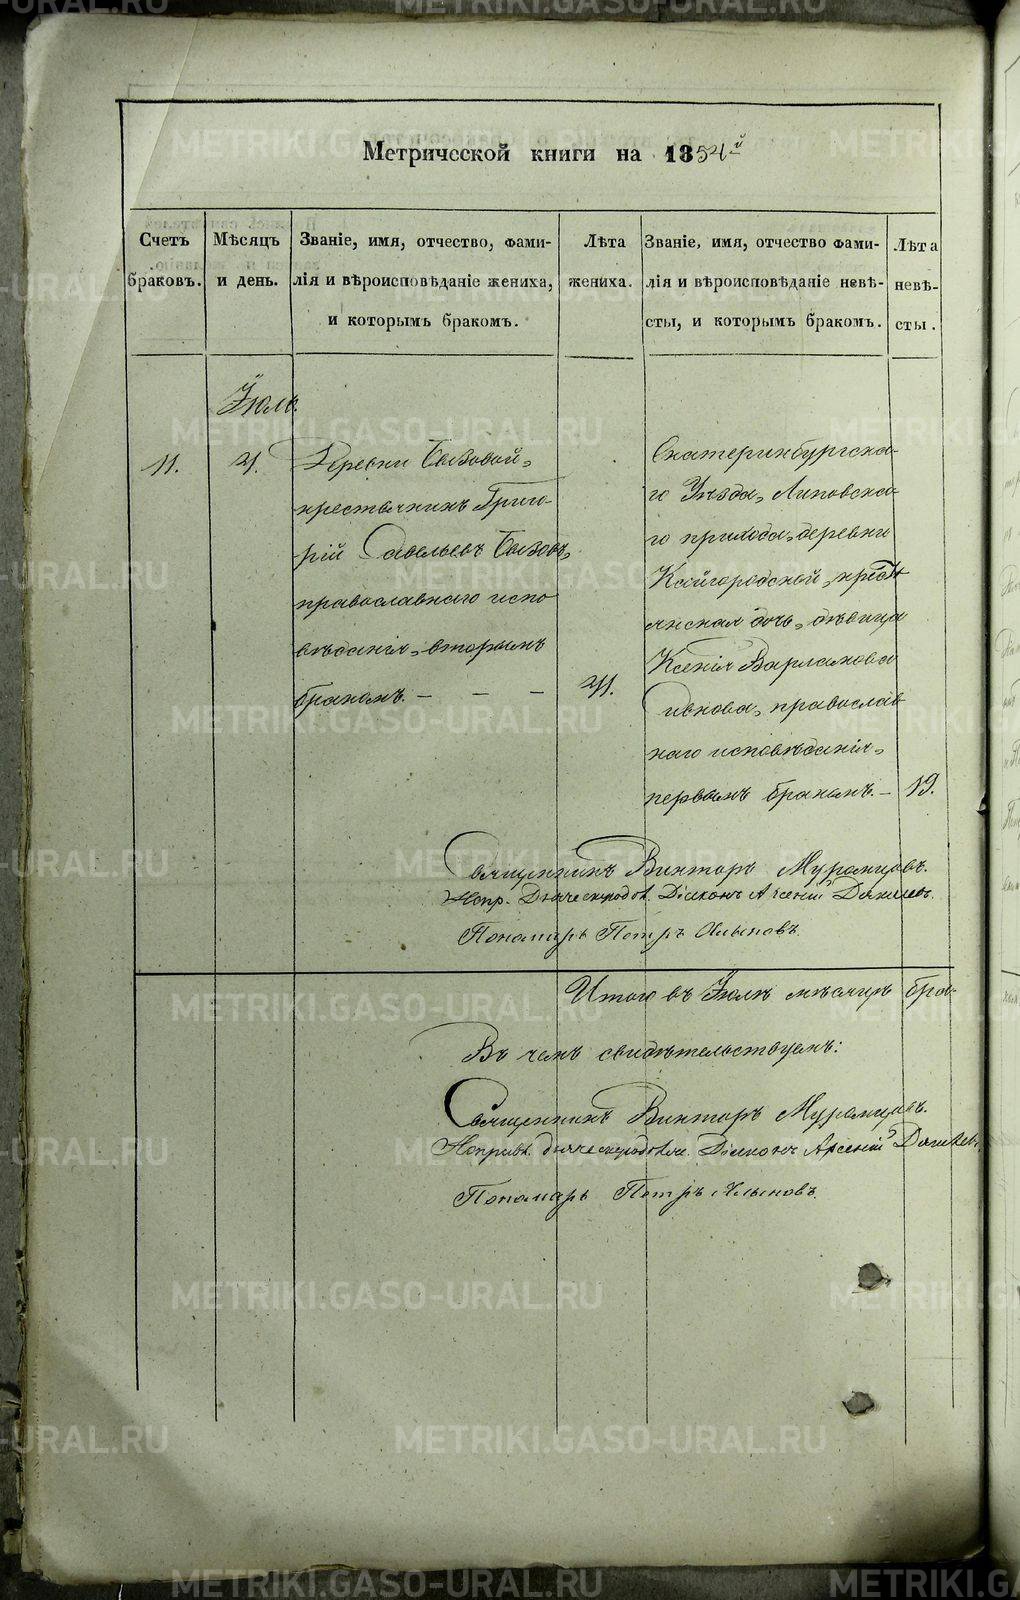 Метрической книги на 1854й
Счетъ браковъ.
Мѣсяцъ и день.
Званіе, имя, отчество, фами-
лія и вѣроисповѣданіе жениха,
и которымъ бракомъ.
Лѣта жениха.
Званіе, имя, отчество фами-
лія и вѣроисповѣданіе невѣ-
сты, и которымъ бракомъ.
Лѣта невѣ-
сты.
Іюль.
11.
4.
Деревни Бызовой,
крестьянинъ Григо-
рій Савельевъ Бызовъ,
православнаго испо
вѣданія, вторымъ
бракомъ. – – –
41.
Екатеринбургска-
го Уѣзда, Липовска-
го прихода, деревни
Кайгородской, крест
янская дочь, дѣвица
Ксенія Варламова
православ
наго исповѣданія,
первымъ бракомъ. –
19.
Священникъ Викторъ
Діаконъ Арсеній
Пономарь Петръ
Итого въ Іюлѣ мѣсяцѣ бра-
Въ чемъ свидѣтельствуемъ:
Священникъ Викторъ
Діаконъ Арсеній
Пономарь Петръ
METRIKI.GASO-URAL.RU